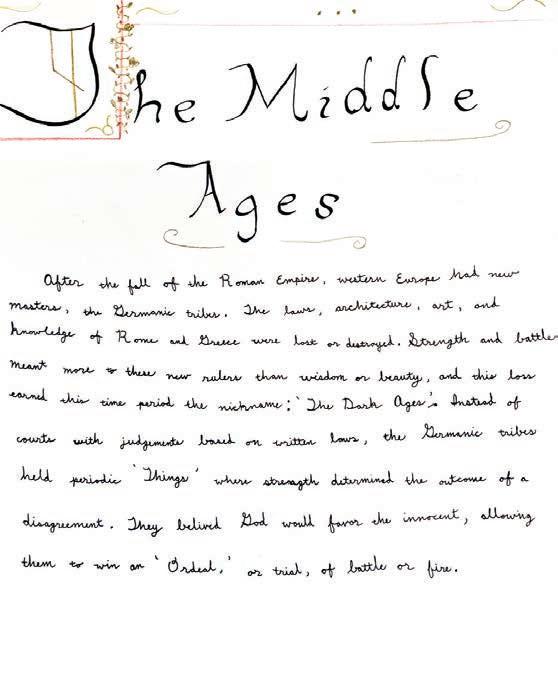 The Middle
Ages
After the fall of the Roman Empire, western Europe had new
masters, the Germanic tribes. The laws, architecture, art, and
knowledge of Rome and Greece were lost or destroyed. Strength and battle
meant more to these new rulers than wisdom or beauty, and this loss
earned this time period the nickname: 'The Dark Ages'. Instead of
courts with judgements based on written laws, the Germanic tribes
held periodic 'Things' where strength determined the outcome of a
disagreement. They belived God would favor the innocent, allowing
them to win an 'Ordeal,' or trial, of battle or fire.